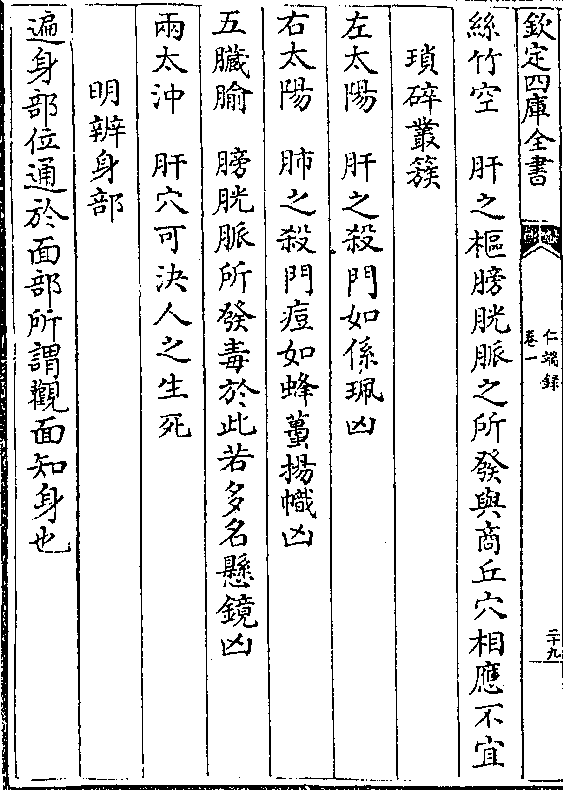 欽定四庫全書
仁端錄
卷一
二十九
絲竹空　肝之樞膀胱脈之所發與商丘穴相應不宜
瑣碎叢簇
左太陽　肝之殺門如係珮凶
右太陽　肺之殺門痘如蜂蠆揚幟凶
五臟腧　膀胱脈所發毒於此若多名懸鏡凶
兩太沖　肝穴可決人之生死
明辨身部
遍身部位通於面部所謂觀面知身也